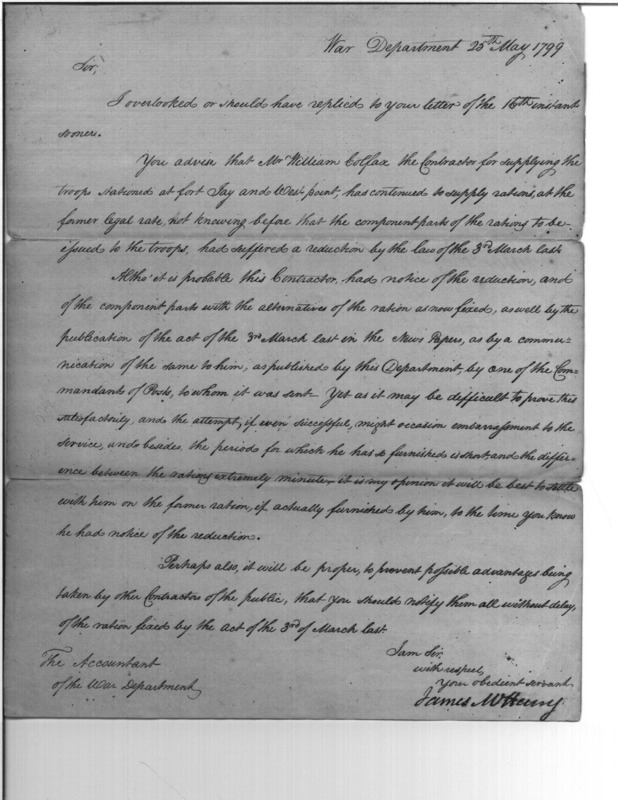 War Department 25th May 1799
Sir,
I overlooked or should have replied to your letter of the 16th instant
sooner.
You advise that Mr William Colfax the Contractor for supplying the
troops stationed at fort Jay and West point, has continued to supply rations, at the
former legal rate, not knowing before that the component parts of the rations to be
issued to the troops, had suffered a reduction by the law of the 3d March last.
Altho' it is probable this Contractor, had notice of the reduction, and
of the component parts with the alternatives of the ration as now fixed, as well by the
publication of the act of the 3rd March last in the News Papers, as by a commu=
nication of the same to him, as published by this Department, by one of the Com=
mandants of Posts, to whom it was sent - Yet as it may be difficult to prove this
satisfactorily, and the attempt, if even successful, might occasion embarrassment to the
service, and besides, the periods for which he has so furnished is short, and the differ=
ence between the rations extremely minute, it is my opinion it will be best to settle
with him on the former ration, if actually furnished by him, to the time you know
he had notice of the reduction.
Perhaps also, it will be proper, to prevent possible advantages being
taken by other Contractors of the public, that you should notify them all without delay,
of the ration fixed by the act of the 3rd of March last.
I am Sir,
with respect,
Your obedient servant
James McHenry
The Accountant
of the War Department